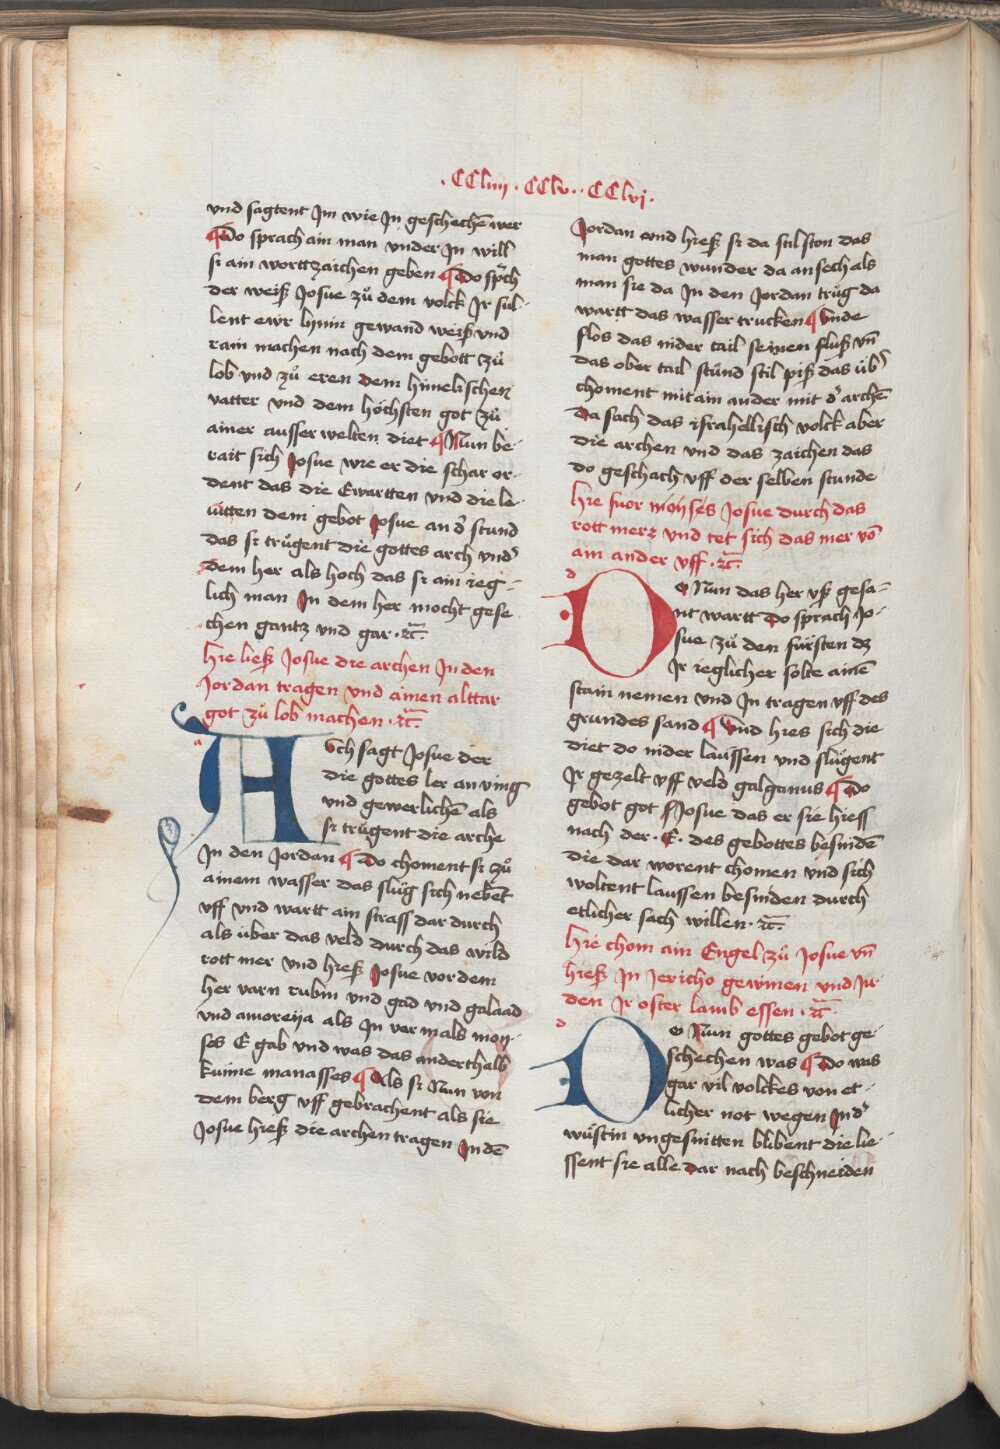 .CCliiij. CClv.. CClvj.
vnd sagtent Jm wie Jn geschechē wer
¶Do sprach ain man vnder Jn will
si ain worttzaichen geben ¶Do sp̄ch
der weiß Josue zů dem volck Jr sul-
lent ewr lynin gewand weiß vnd
rain machen nach dem gebott zů
lob vnd zů eren dem himelischen
vatter vnd dem höchsten got zů
ainer ausser welten diet ¶Nun be-
rait sich Josue wie er die schar or-
dent das die Ewartten vnd die le-
uitten dem gebot Josue an dˀ stund
das si trůgent die gottes arch vndˀ
dem her als hoch das si ain ieg-
lich man Jn dem her mocht gese-
chen gantz vnd gar · ꝛc̄.
hie ließ Josue die archen Jn den
Jordan tragen vnd ainen alttar
got zů lob machen · ꝛc̄.
a
Ach sagt Josue der
die gottes ler an ving
vnd gewerlichē als
si trůgent die arche
Jn den Jordan ¶Do choment si zů
ainem wasser das slůg sich nebēt
vff vnd wartt ain strass dar durch
als über das veld durch das wild
rott mer vnd hieß Josue vor dem
her varn rubin vnd gad vnd galaad
vnd amoreya als Jn vermals moy-
ses E gab vnd was das anderthalb
kunne manasses ¶Als si Nun von
dem berg vff gebrachent als sie
Josue hieß die archen tragen Jn dē
Jordan vnd hieß si da stil ston das
man gottes wunder da an sech als
man sie da Jn den Jordan trůg da
wartt das wasser trucken ¶Vnde
flos das nider tail seinen fluß vn̄
das ober tail stůnd stil piß das übˀ
choment mit ain ander mit dˀ archē
Da sach das israhellisch volck aber
die archen vnd das zaichen das
do geschach vff der selben stunde
hie fuor moyses Josue durch das
rott merz vnd tet sich das mer vō
ain ander vff · ꝛc̄.
d
Do Nun das her vß gesa-
nt wartt Do sprach Jo-
sue zů den fürsten dz
Jr ieglicher solte ainē
stain nemen vnd Jn tragen vff des
grundes sand ¶Vnd hies sich die
diet do nider laussen vnd slůgent
Jr gezelt vff veld galganus ¶Do
gebot got Josue das er sie hiess
nach der · E · des gebottes besnidē
die dar worent chomen vnd sich
woltent laussen besniden durch
etlicher sach willen · ꝛc̄.
hie chom ain Engel zů Josue vn̄
hieß Jn Jericho gewinen vnd Ju-
den Jr oster lamb essen · ꝛc̄.
d
Do Nun gottes gebot ge-
schechen was ¶Do was
gar vil volckes von et-
licher not wegen Jn dˀ
wüstin vngesnitten blibent die lie-
ssent sie alle dar nach beschneiden